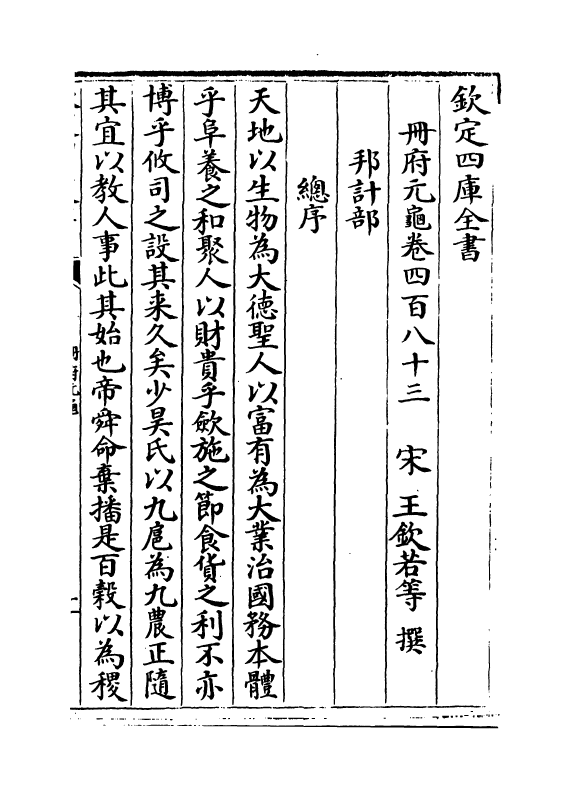 欽定四庫全書
冊府元龜卷四百八十三　宋　王欽若等　撰
邦計部
總序
天地以生物為大德聖人以富有為大業治國務本體
乎阜養之和聚人以財貴乎斂施之節食貨之利不亦
博乎攸司之設其来久矣少昊氏以九扈為九農正隨
其宜以教人事此其始也帝舜命棄播是百穀以為稷